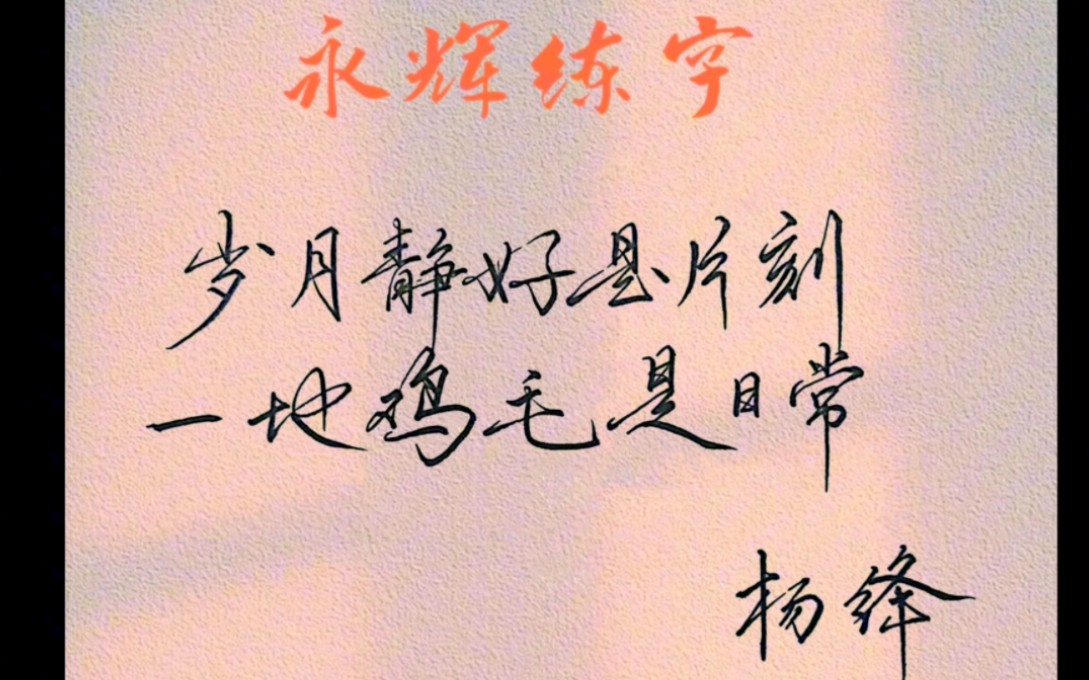 永辉练字
岁月静好是片刻
一地鸡毛是日常
杨绛